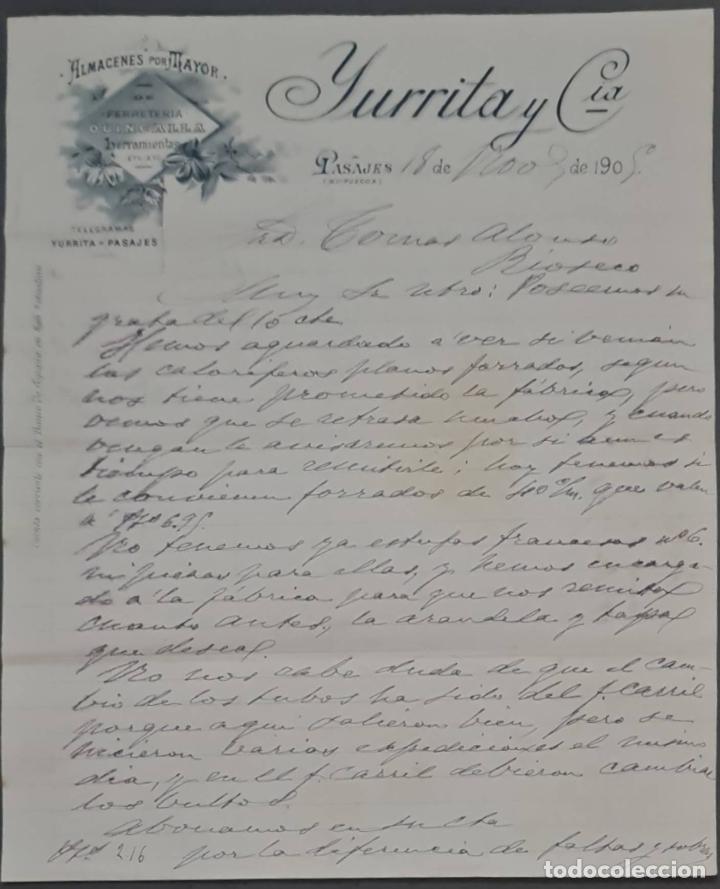 ALMACENES POR MAYOR
DE
FERRETERIA
QUINCALLA
Herramientas
ETC. ETC.
TELEGRAMAS
YURRITA - PASAJES
Yurrita y Cía
PASAJES 18 de Nov de 1905
(GUIPUZCOA)
Cuenta corriente con el Banco de España en San Sebastian
Sr. D. Tomas Alonso
Rioseco
Muy Sr. ntro: Poseemos su
grata del 10 cte
Hemos aguardado á ver si venian
los caloriferos planos forrados, segun
nos tiene prometido la fábrica, pero
vemos que se retrasa mucho, y cuando
vengan le avisaremos por si aun es
tiempo para remitirle; hoy tenemos si
le convienen forrados de 40 c/m. que valen
á Pts 6.95
No tenemos ya estufas francesas nº 6.
ni piezas para ellas, y hemos encarga-
do á la fábrica para que nos remita
cuanto antes, la arandela y tapa
que desea.
No nos cabe duda de que el cam-
bio de los tubos ha sido del f. carril
porque aqui salieron bien, pero se
hicieron varias expediciones el mismo
dia, y en el f. carril debieron cambiar
los bultos.
Abonamos en su cta
Pts 2.16 por la diferencia de faltas y sobras
todocoleccion